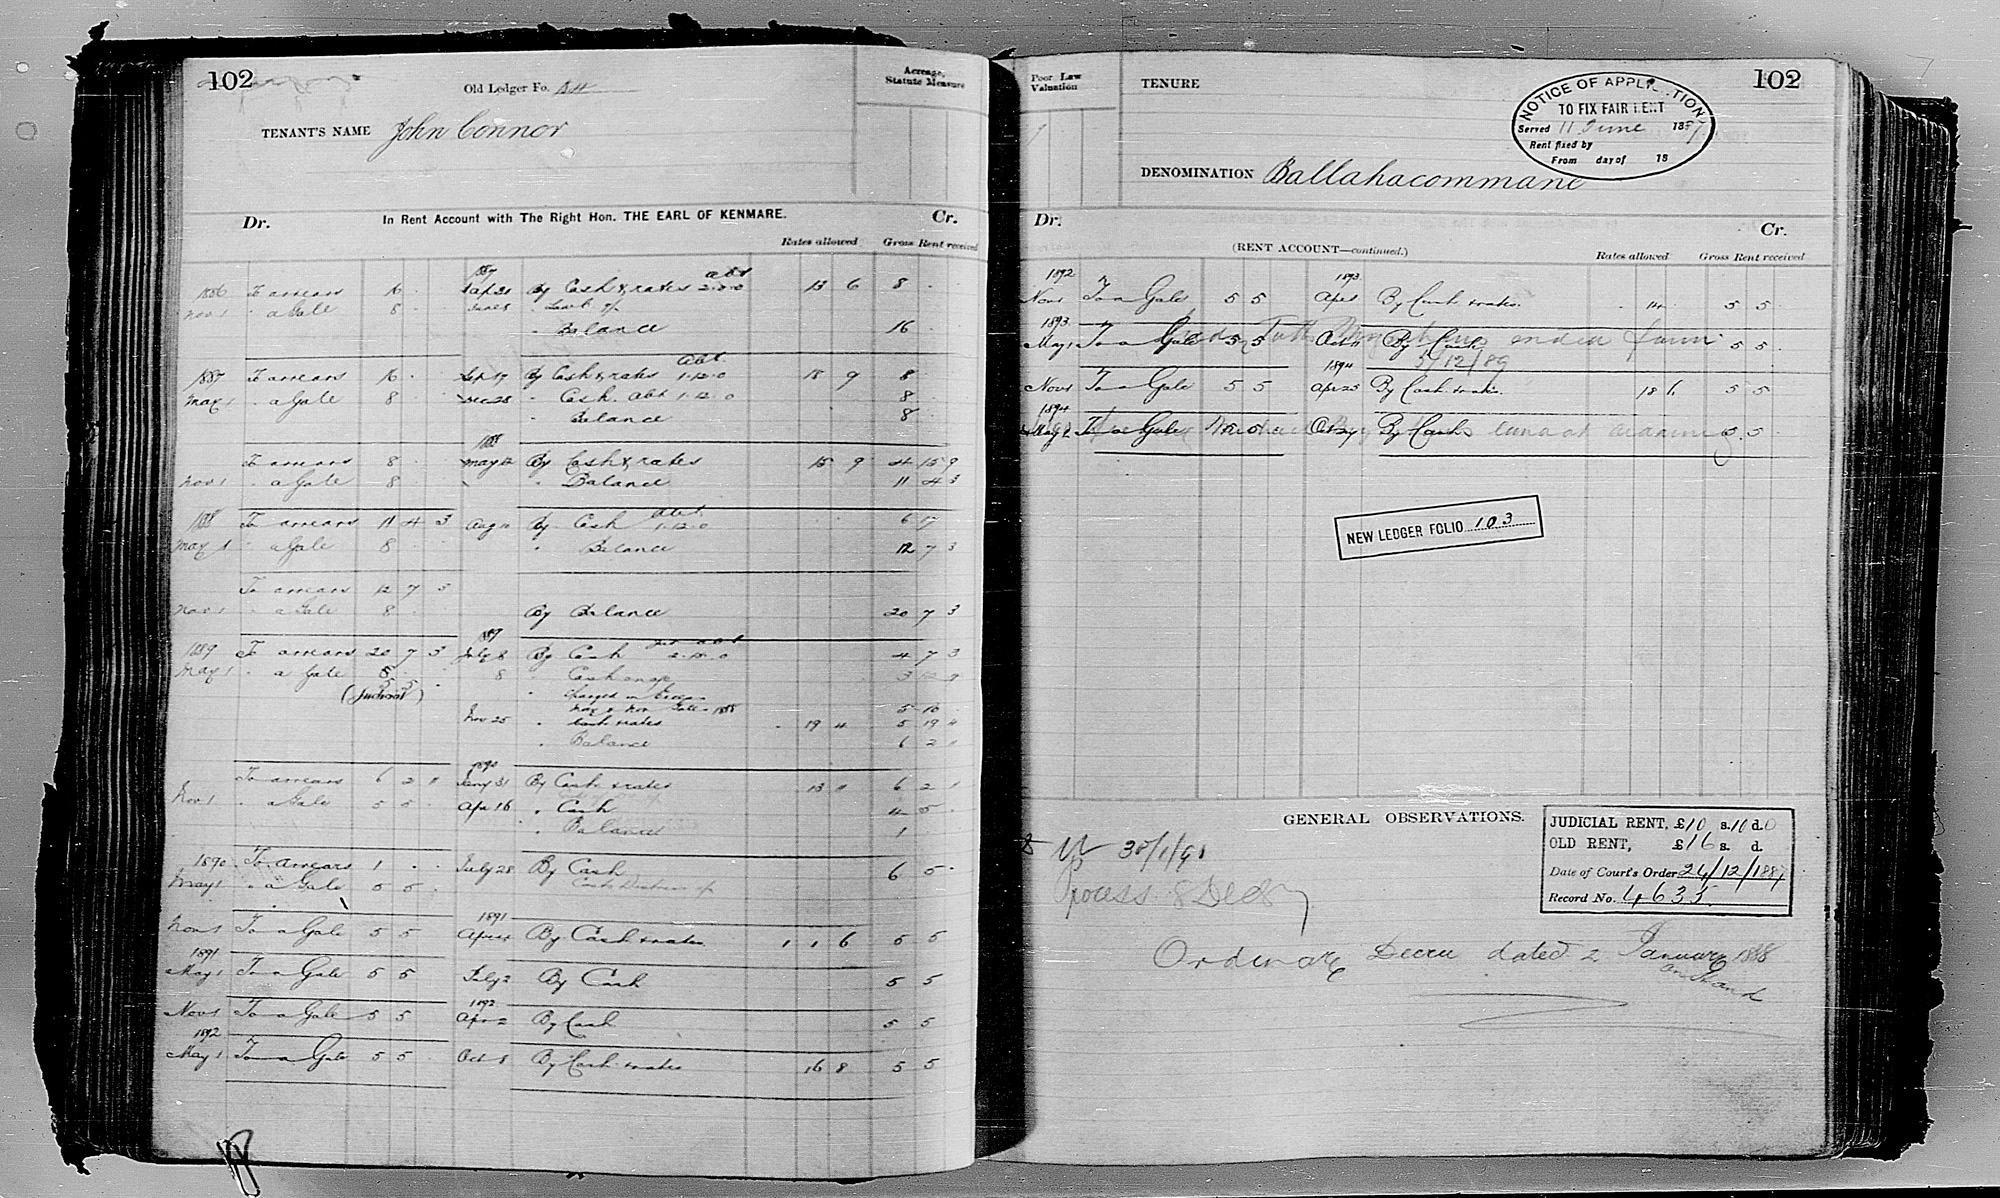 102
Old Ledger Fo.
Acreage, Statute Measure
TENANT'S NAME John Connor
Dr. In Rent Account with The Right Hon. THE EARL OF KENMARE. Cr.
Rates allowed Gross Rent received
1887 abt
1886 To arrears 16 . By Cash & rates 2.0.0 13 6 8
Nov 1 " a Gale 8 .
" Balance 16
abt
1887 To arrears 16 . Sep 17 By Cash & rates 1.12.0 18 9 8
May 1 " a Gale 8 . Dec 28 " Cash abt 1.12.0 8
" Balance 8
1888
To arrears 8 May 12 By Cash & rates 15 9 4 15 9
Nov 1 " a Gale 8 " Balance 11 4 3
abt
1888 To arrears 11 4 3 Aug By Cash 1.12.0 6 17
May 1 " a Gale 8 " Balance 12 7 3
To arrears 12 7 3
Nov 1 " a Gale 8 By Balance 20 7 3
1889
1889 To arrears 20 7 3 July 8 By Cash 4 7 3
May 1 " a Gale 5 5 8 " Cash
(Judicial)
May & Nov Gales 1888 5 10
Nov 25 " Cash & rates 19 4 5 19
" Balance 6 2
1890
To arrears 6 2 Jany 31 By Cash & rates 13 6 2
Nov 1 " a Gale 5 5 Apr 16 " Cash 4 5
" Balance 1
1890 To arrears 1 . . July 28 By Cash 6 5
May 1 " a Gale 5 5
1891
Nov 1 To a Gale 5 5 Apr 4 By Cash & rates 1 1 6 5 5
1891
May 1 To a Gale 5 5 July 2 By Cash 5 5
1892
Nov 1 To a Gale 5 5 Apr 2 By Cash 5 5
1892
May 1 To a Gale 5 5 Oct 8 By Cash & rates 16 8 5 5
Poor Law Valuation
TENURE
102
NOTICE OF APPLICATION
TO FIX FAIR RENT
Served 11 June 1887
Rent fixed by
From day of 18
DENOMINATION Ballahacommane
Dr. Cr.
(RENT ACCOUNT—continued.) Rates allowed Gross Rent received
1892 1893
Nov 1 To a Gale 5 5 Apr By Cash & rates 14 5 5
1893
May 1 To a Gale 5 5 Oct By Cash 5 5
1894
Nov 1 To a Gale 5 5 Apr 25 By Cash & rates. 18 6 5 5
1894
May 1 To a Gale 5 5 Oct By Cash 5 5
NEW LEDGER FOLIO 103
GENERAL OBSERVATIONS.
JUDICIAL RENT, £10 s.10 d.0
OLD RENT, £16 s. d.
Date of Court's Order 24/12/1887
Record No. 4635
Process & Decy
Ordinary Decree dated 2 January 1888
on hand